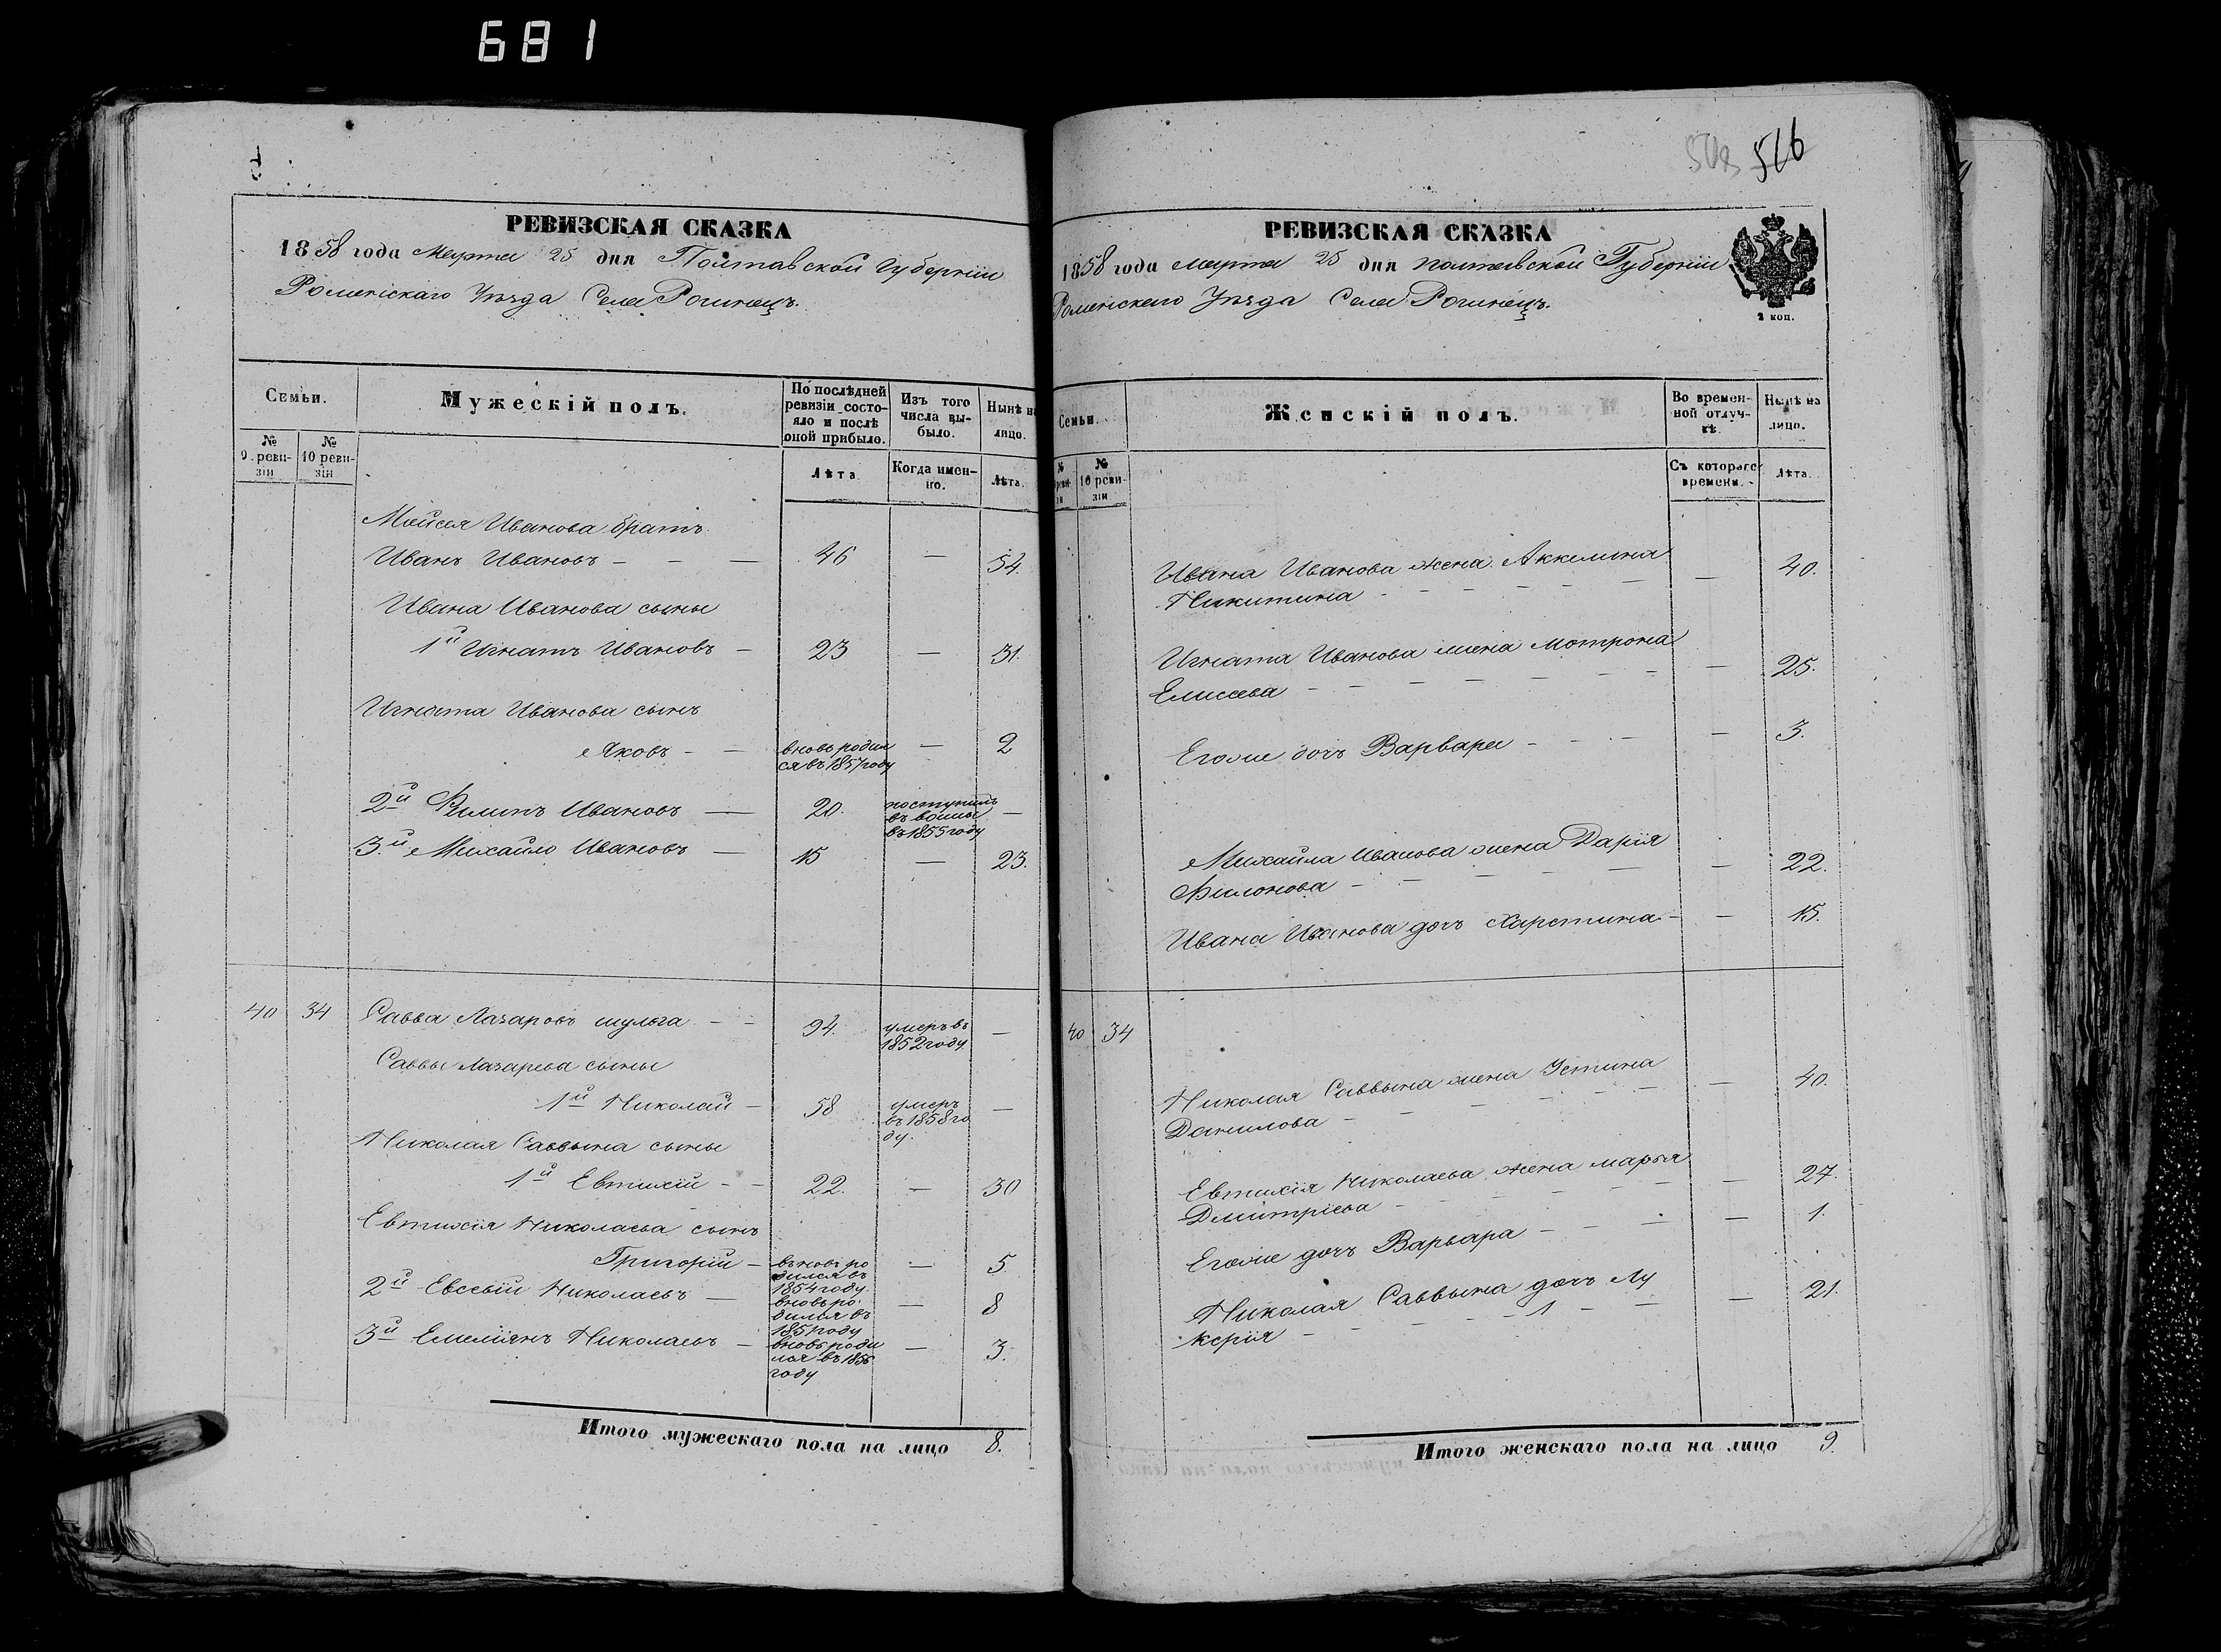 681
508 516
РЕВИЗСКАЯ СКАЗКА
1858 года Марта 25 дня Полтавской Губерніи
Роменскаго Уѣзда Села Рогинецъ.
Семьи.
Мужескій полъ.
По послѣдней ревизіи состояло и послѣ оной прибыло.
Изъ того числа выбыло.
Нынѣ на лицо.
№ 9 ревизіи
№ 10 ревизіи
Лѣта
Когда именно.
Лѣта.
Мойсея Иванова братъ
Иванъ Ивановъ — — — 46 — 54.
Ивана Иванова сыны
1й Игнатъ Ивановъ — 23 — 31.
Игната Иванова сынъ
Яковъ — — вновь родил — 2
ся въ 1857 году
2й Филипъ Ивановъ — 20. поступилъ —
въ воины
въ 1855 году
3й Михайло Ивановъ — 15 — 23.
40 34 Савва Лазаровъ шульга — — 94. умеръ въ —
1852 году.
Саввы Лазарева сыны
1й Николай — 58 умеръ —
въ 1858 го
ду.
Николая Саввина сыны
1й Евтихій — — 22. — 30
Евтихія Николаева сынъ
Григорій — вновь ро — 5
дился въ
1854 году.
2й Евсевій Николаевъ — вновь ро — 8
дился въ
1851 году
3й Емеліянъ Николаевъ — вновь роди — 3.
лся въ 1856
году
Итого мужескаго пола на лицо 8.
РЕВИЗСКАЯ СКАЗКА
1858 года Марта 25 дня полтавской Губерніи
Роменскаго Уѣзда Села Рогинецъ.
2 коп.
Семьи.
Женскій полъ.
Во временной отлучкѣ.
Нынѣ на лицо.
№ 10 ревизіи
Съ котораго времени.
Лѣта.
Ивана Иванова жена Аккелина
Никитина — — — — — — 40.
Игната Иванова жена Мотрона
Елисеева — — — — — — — 25.
Егоже дочь Варвара — — — — 3.
Михайла Иванова жена Дарія
Филонова — — — — — — 22.
Ивана Иванова дочь Харстина — — 15.
40 34
Николая Саввина жена Устина
Данилова — — — — — — 40.
Евтихія Николаева жена марья
Дмитріева — — — — — — 27.
Егоже дочь Варвара — — — — 1.
Николая Саввина дочь Лу
керія — — — — 1 — — — 21.
Итого женскаго пола на лицо 9.